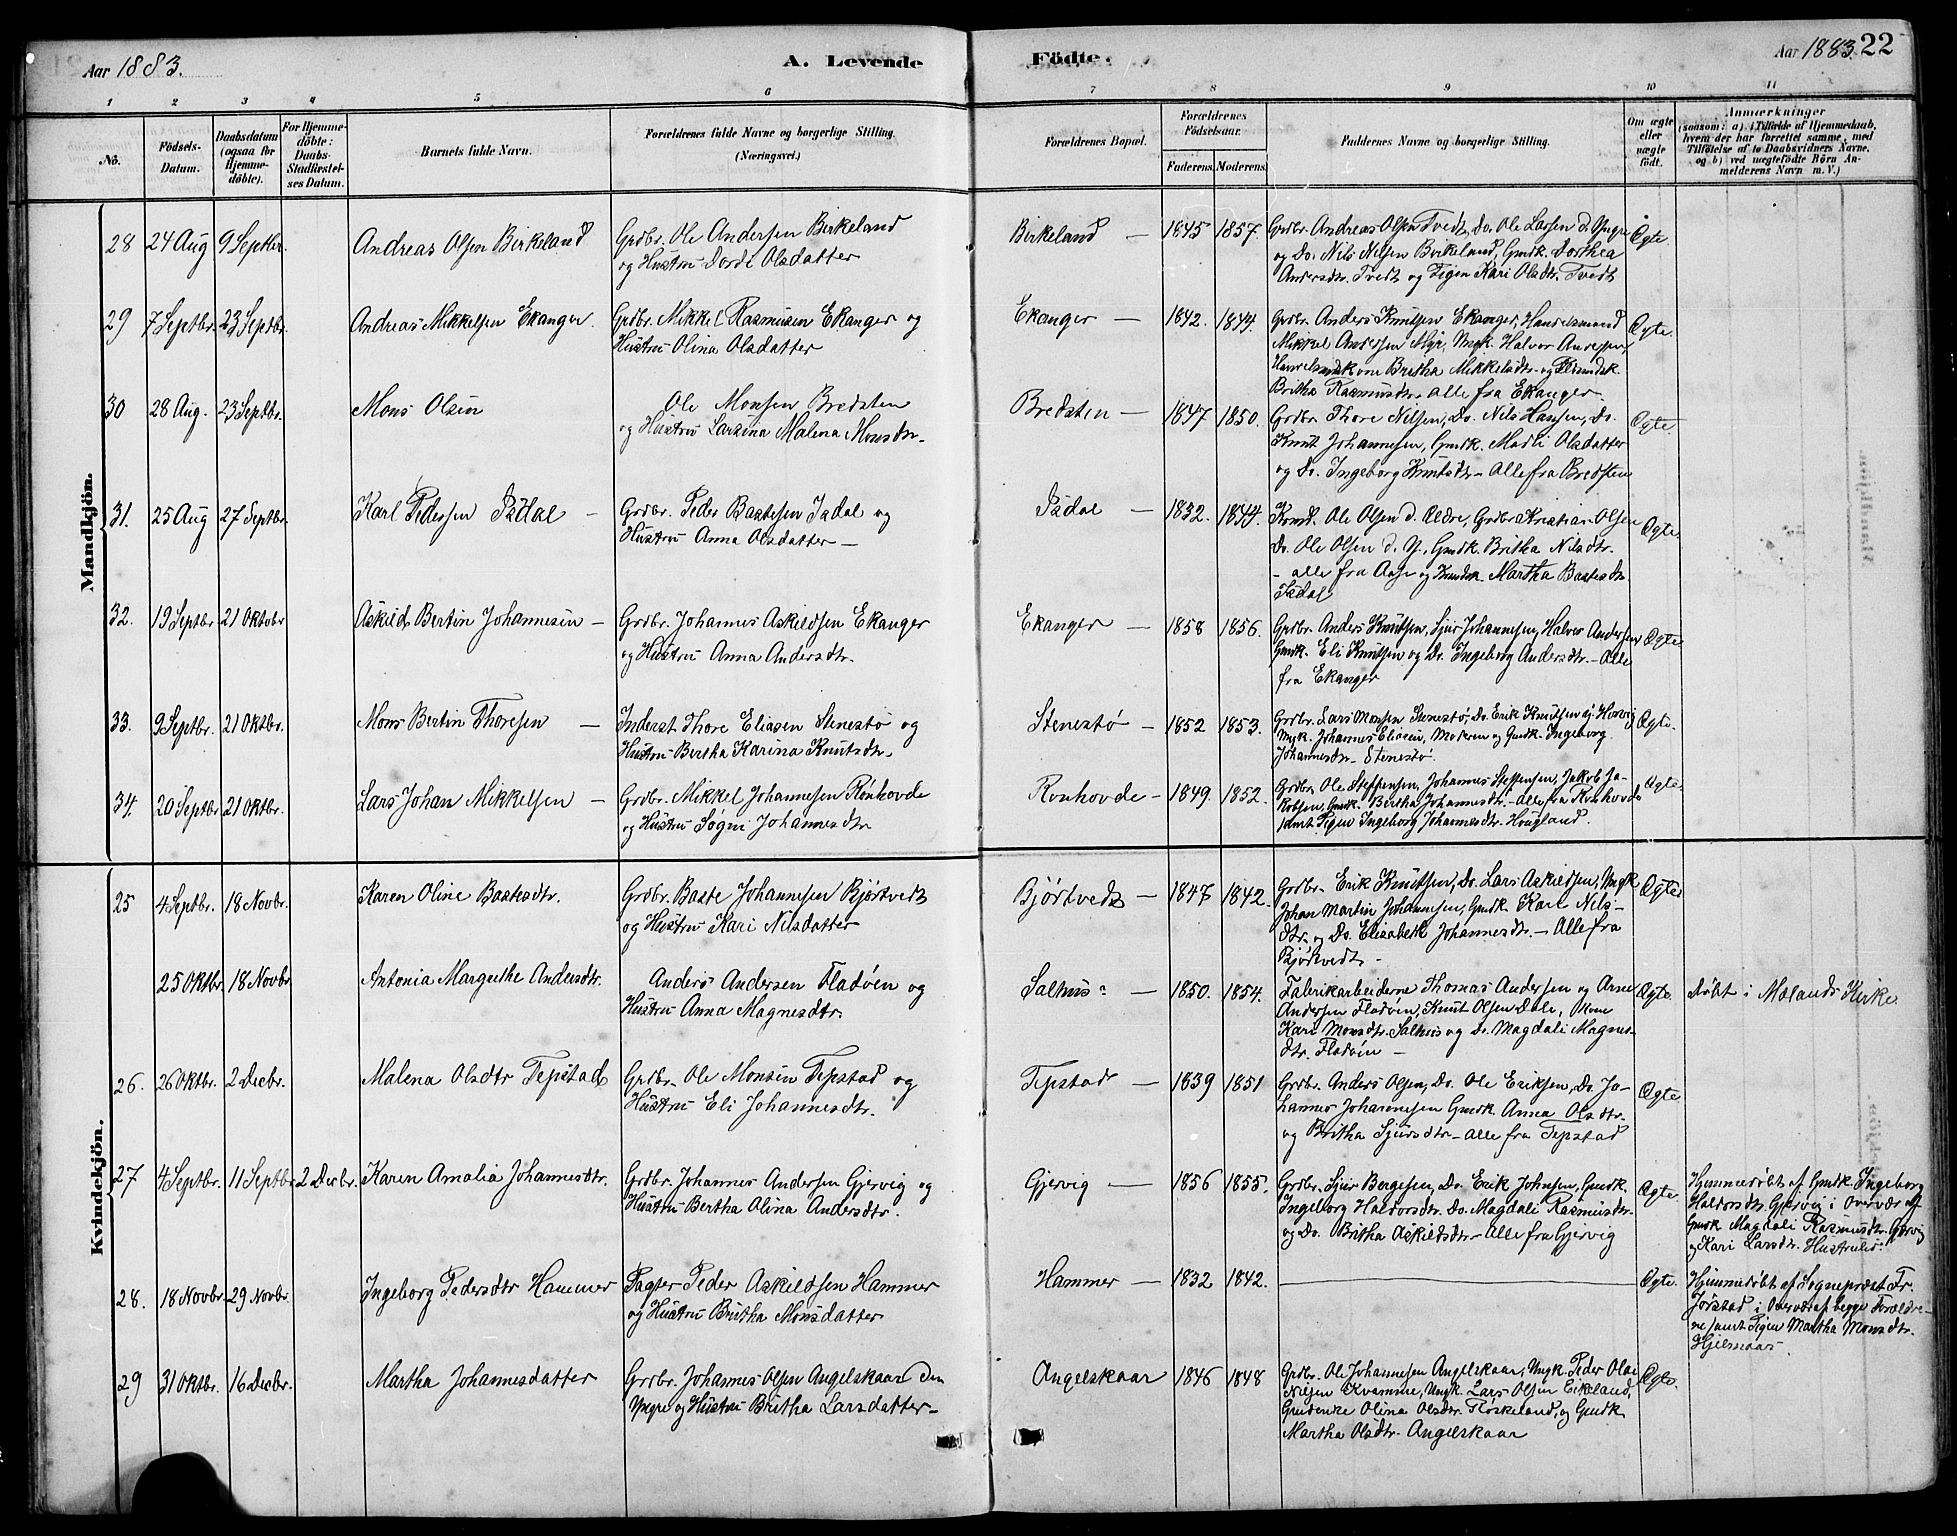 Aar 1883. A. Levende Födte. Aar 1883. 22
1 2 3 4 5 6 7 8 9 10 11
No. Födsels-Datum. Daabsdatum (ogsaa for Hjemme-döbte). For Hjemme-döbte: Daabs-Stadfæstel-ses Datum. Barnets fulde Navn. Forældrenes fulde Navne og borgerlige Stilling. (Næringsvei.) Forældrenes Bopæl. Forældrenes Födselsaar. Faderens. Moderens. Faddernes Navne og borgerlige Stilling. Om ægte eller uægte født. Anmærkninger (saasom: a) i Tilfælde af Hjemmedaab, hvem der har forrettet samme, med Tilföielse af to Daabsvidners Navne, og b) ved uægtefödte Börn An-melderens Navn m. V.)
Mandkjön.
28 24 Aug 9 Septbr. Andreas Olsen Birkeland Grdbr. Ole Andersen Birkeland Birkeland — 1845 1857. Grdbr. Andreas Olsen Tvedt, Do. Ole Larsen d. Yngre Ægte.
og Hustru Dorde Olsdatter og Do. Nils Nilsen Birkeland, Gmdk. Dorthea
Andersdtr. Tvedt og Pigen Kari Olsdtr. Tvedt
29 7 Septbr. 23 Septbr. Andreas Mikkelsen Ekanger. Grdbr. Mikkel Rasmusen Ekanger og Ekanger — 1842. 1844. Grdbr. Anders Knutsen Ekanger, Handelsmand Ægte.
Hustru Olina Olsdatter Mikkel Andersen Myr, Ungk. Halvor Andersen,
Handelsmdskone Britha Mikkelsdtr. og
Britha Rasmusdtr. alle fra Ekanger.
30 28 Aug. 23 Septbr. Mons Olsen Ole Monsen Bredsten Bredsten — 1847 1850. Grdbr. Thore Nilsen, Do. Nils Hansen, Do. Ægte.
og Hustru Larsina Malena Monsdtr. Knut Johannesen, Gmdk. Madli Olsdatter
og Do. Ingeborg Knutsdtr. — Alle fra Bredsten
31. 25 Aug 27 Septbr. Karl Pedersen Isdal — Grdbr. Peder Bastesen Isdal og Isdal — 1832. 1844. Ole Olsen d. Ældre, Grdbr. Kristian Olsen Ægte.
Hustru Anna Olsdatter — Do. Ole Olsen d. Y., Gmdk. Britha Nilsdtr.
— alle fra og Martha Bastesdtr.
Isdal
32. 19 Septbr. 21 Oktobr Askild Bertin Johannesen — Grdbr. Johannes Askildsen Ekanger Ekanger — 1858 1856. Grdbr. Anders Knutsen, Sjur Johannesen, Halvor Andersen Ægte.
og Hustru Anna Andersdtr. Gmdk. Eli Knutsen og Do. Ingeborg Andersdtr. — Alle
fra Ekanger
33. 9 Septbr. 21 Oktbr. Mons Bertin Thoresen — Inderst Thore Eliasen Stenestø og Stenestø — 1852 1853. Grdbr. Lars Monsen Stenestø, Do. Erik Knutsen Ægte.
Hustru Bertha Karina Knutsdtr. Ungk. Johannes Eliasen, Moderen og Gmdk. Ingeborg
Johannesdtr. Stenestø.
34. 20 Septbr. 21 Oktbr. Lars Johan Mikkelsen — Grdbr. Mikkel Johannesen Rønhovde Rønhovde — 1849. 1852. Grdbr. Ole Steffensen, Johannes Steffensen, Jakob Ja- Ægte.
og Hustru Søgni Johannesdtr. kobsen, Gmdk. Bertha Johannesdtr. — Alle fra Rønhovde
samt Pigen Ingeborg Johannesdtr. Hougland.
Kvindekjön.
25 4 Septbr. 18 Novbr. Karen Oline Bastesdtr. Grdbr. Baste Johannesen Bjørtvedt Bjørtvedt — 1847 1842. Grdbr. Erik Knutsen, Do. Lars Askildsen, Ungk Ægte
og Hustru Kari Nilsdatter Johan Martin Johannesen, Gmdk. Kari Nils-
dtr. og Do. Elisabeth Johannesdtr. — Alle fra
Bjørtvedt —
25 Oktbr. 18 Novbr. Antonia Margrethe Andersdtr. Anders Andersen Fladøen og Salhus — 1850. 1854. Fabrikarbeiderne Thomas Andersen og Arne Ægte. døbt i Mælands Kirke
Hustru Anna Magnesdtr. Andersen Fladøen, Knut Olsen Dale, Kone
Kari Monsdtr. Salhus og Do. Magdali Magnes-
dtr. Fladøen —
26. 26 Oktbr. 2 Decbr. Malena Olsdtr Tepstad Grdbr. Ole Monsen Tepstad og Tepstad — 1839 1851 Grdbr. Anders Olsen, Do. Ole Eriksen, Do. Jo- Ægte
Hustru Eli Johannesdtr. hannes Johannesen Gmdk. Anna Olsdtr.
og Britha Sjursdtr. — alle fra Tepstad
27 4 Septbr. 11 Septbr. 2 Decbr. Karen Amalia Johannesdtr. Grdbr. Johannes Andersen Gjervig og Gjervig — 1856 1855. Grdbr. Sjur Børgesen, Do. Erik Johnsen, Gmdk. Ægte. Hjemmedøbt af Gmdk. Ingeborg
Hustru Bertha Olina Andersdtr. Ingeborg Haldorsdtr. Do. Magdali Rasmusdtr. Haldorsdtr. Gjervig i Overvær af
og Do. Britha Askildsdtr. — Alle fra Gjervig Gmdk Magdali Rasmusdtr. Gjervig
og Kari Larsdtr.
28. 18 Novbr. 29 Novbr. Ingeborg Pedersdtr Hammer Pagter Peder Askildsen Hammer Hammer — 1832 1842. — Ægte. Hjemmedøbt af Sognepræst Fr.
og Hustru Britha Monsdatter Jørstad i Overvær af begge Forældre-
ne samt Pigen Martha Monsdtr.
Hjelmaas.
29 31 Oktbr. 16 Decbr. Martha Johannesdatter Grdbr. Johannes Olsen Angelskaar den Angelskaar 1846 1848 Grdbr. Ole Johannesen Angelskaar, Ungk. Peder Olai Ægte.
Yngre og Hustru Britha Larsdatter — Nilsen Kvamme, Ungk. Lars Olsen Eikeland,
Grdenke Olina Olsdtr. Røskeland, og Gmdk
Martha Olsdtr. Angelskaar